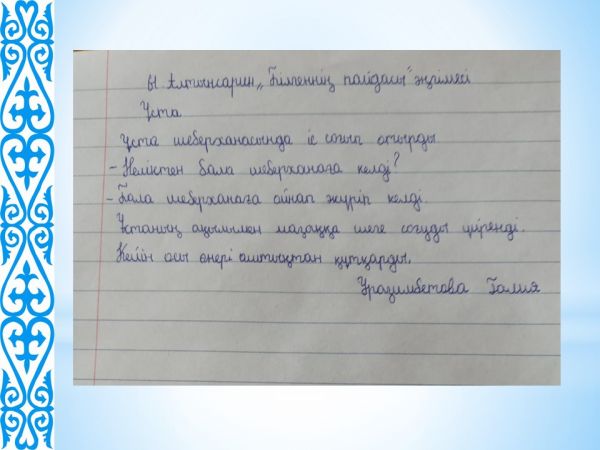 Ы Алтынсарин „Білгеннің пайдасы" әңгімесі
Ұста
Ұста шеберханасында іс соғып отырды
- Неліктен бала шеберханаға келді?
- Бала шеберханаға ойнап жүріп келді.
Ұстаның ақылымен мазаққа шеге соғуды үйренді.
Кейін осы өнері аштықтан құтқарды.
Уразимбетова Галия